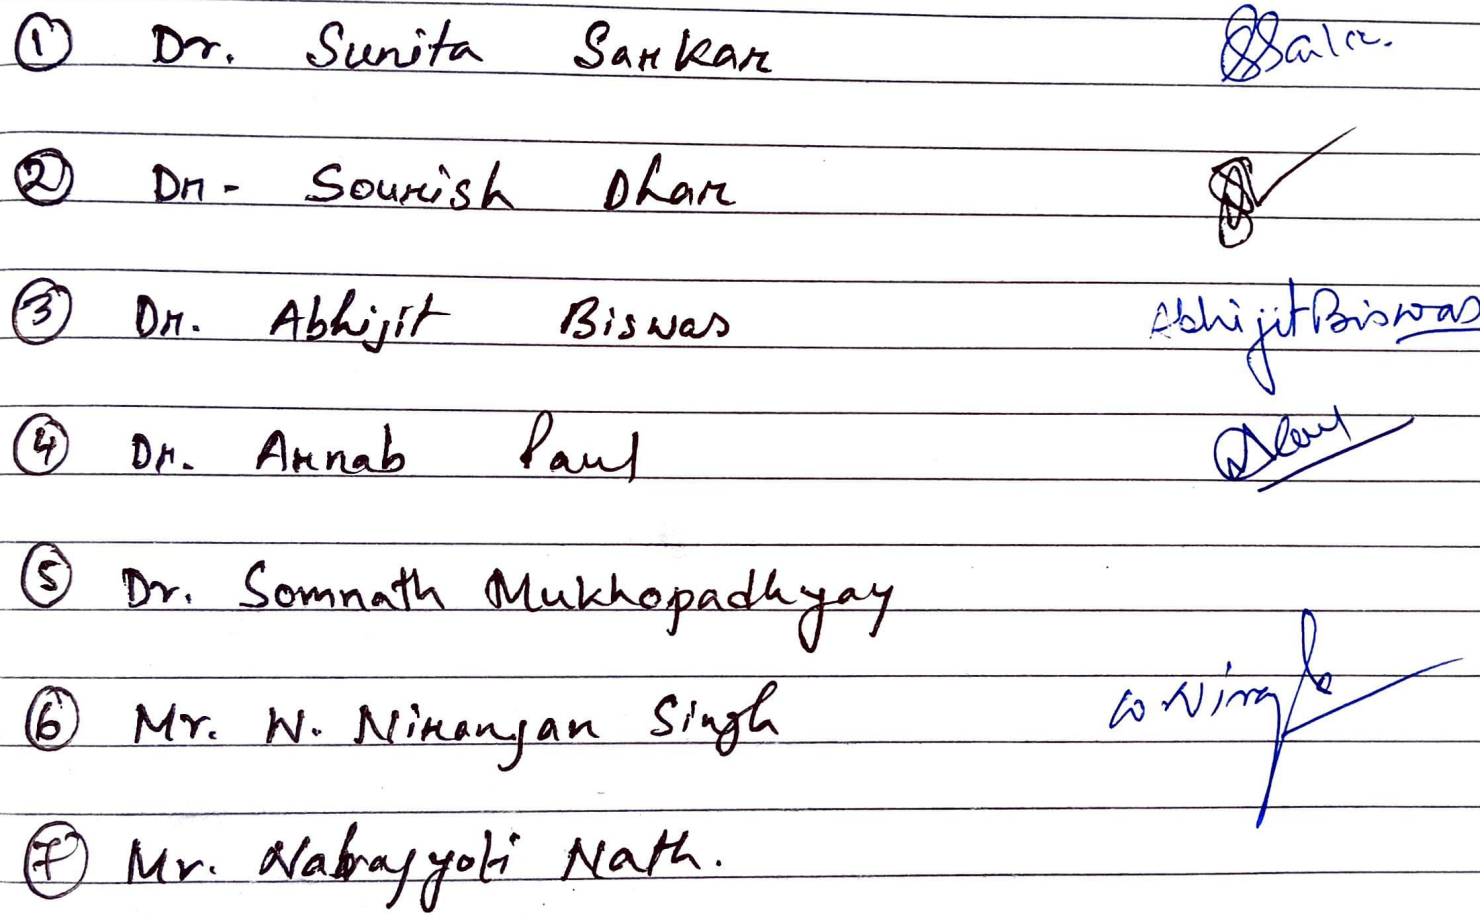 ① Dr. Sunita Sarkar SSarkar.
② Dr - Sourish Dhar
③ Dr. Abhijit Biswas Abhijit Biswas
④ Dr. Arnab Paul APaul
⑤ Dr. Somnath Mukhopadhyay
⑥ Mr. W. Niranjan Singh W Niranj
⑦ Mr. Nabajyoti Nath.